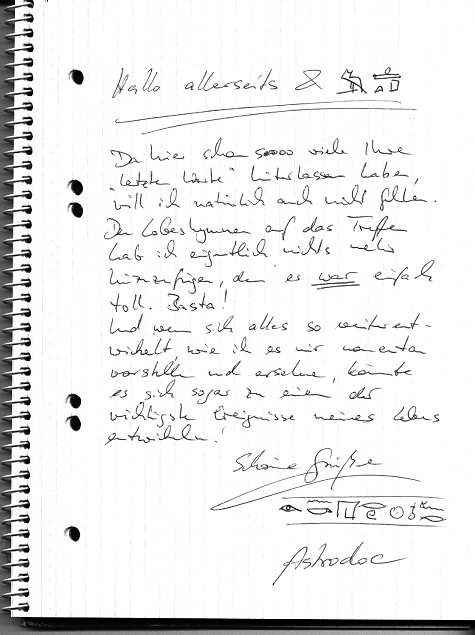 Hallo allerseits &
Da hier schon soooo viele Ihre
"letzten Worte" hinterlassen haben,
will ich natürlich auch nicht fehlen.
Den Lobeshymnen auf das Treffen
hab ich eigentlich nichts mehr
hinzuzufügen, denn es war einfach
toll. Basta!
Und wenn sich alles so weiterent-
wickelt, wie ich es mir momentan
vorstelle und ersehne, könnte
es sich sogar zu einem der
wichtigsten Ereignisse meines Lebens
entwickeln!
Schöne Grüße
Astrodoc